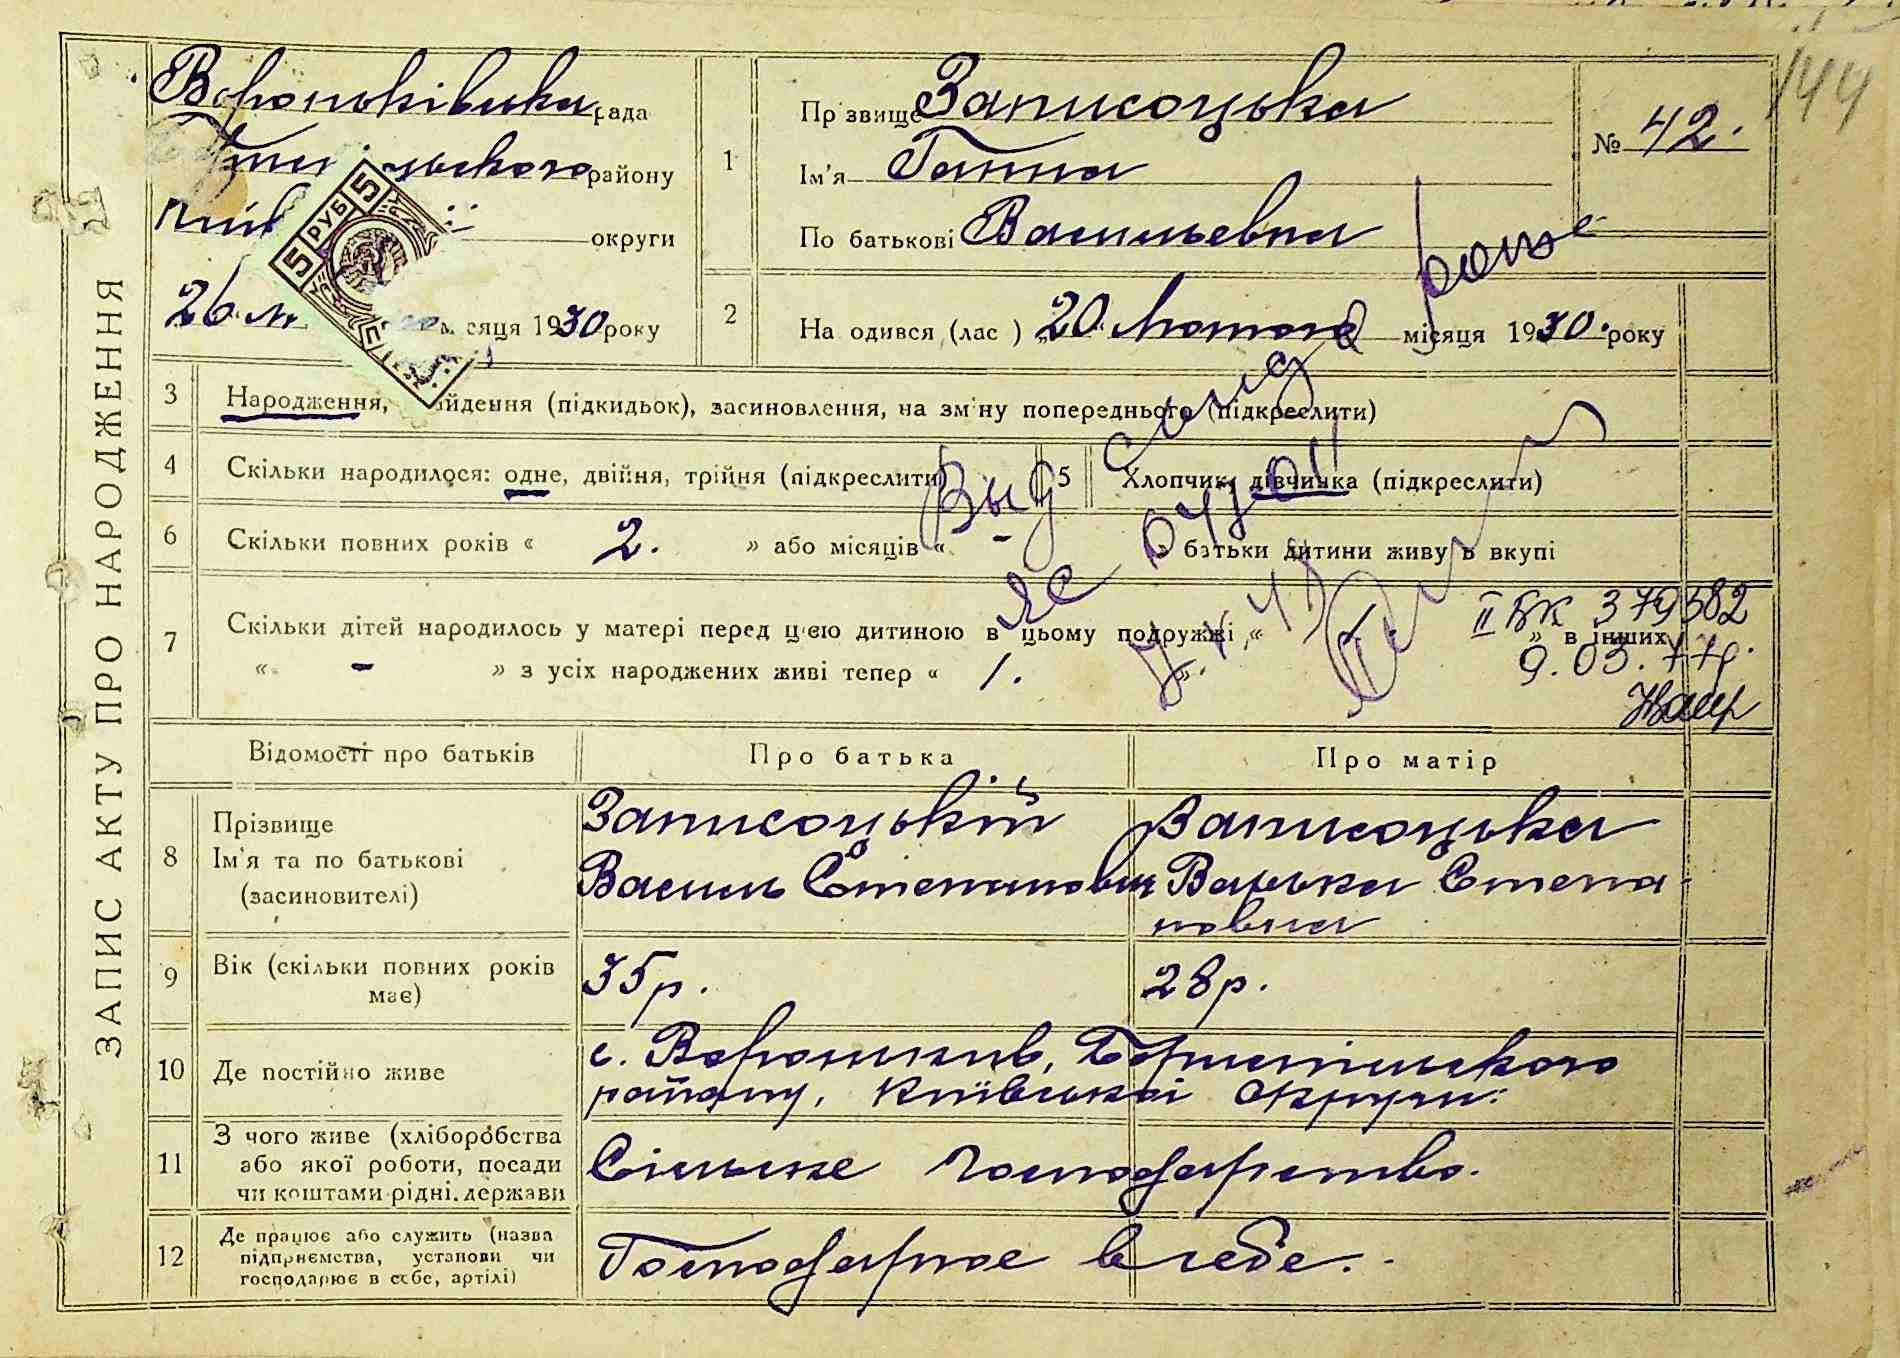 144
ЗАПИС АКТУ ПРО НАРОДЖЕННЯ
Вороньківська рада
району
округи
26 місяця 1930 року
5 РУБ 5
1 Прізвище Записоцька
Ім'я Ганна
По батькові Васильевна
№ 42.
2 На одився (лас ) „20" Лютого місяця 1930. року
3 Народження, айдення (підкидьок), засиновлення, на зміну попереднього (підкреслити)
4 Скільки народилося: одне, двійня, трійня (підкреслити)
5 Хлопчик, дівчинка (підкреслити)
6 Скільки повних років « 2. » або місяців « - » батьки дитини живуть вкупі
7 Скільки дітей народилось у матері перед цією дитиною в цьому подружжі „« 1. » в інших
« - » з усіх народжених живі тепер « 1. ».
II БК 379582
9.03.77р.
Відомості про батьків Про батька Про матір
8 Прізвище
Ім'я та по батькові
(засиновителі)
Записоцький
Василь Степанович
Записоцька
Варька Степа-
новна
9 Вік (скільки повних років
має)
35р. 28р.
10 Де постійно живе
с. Вороньків, Бориспільського
району, Київської округи.
11 З чого живе (хліборобства
або якої роботи, посади
чи коштами рідні, держави
Сільське господарство.
12 Де працює або служить (назва
підприємства, установи чи
господарює в себе, артілі)
Господарює в себе.